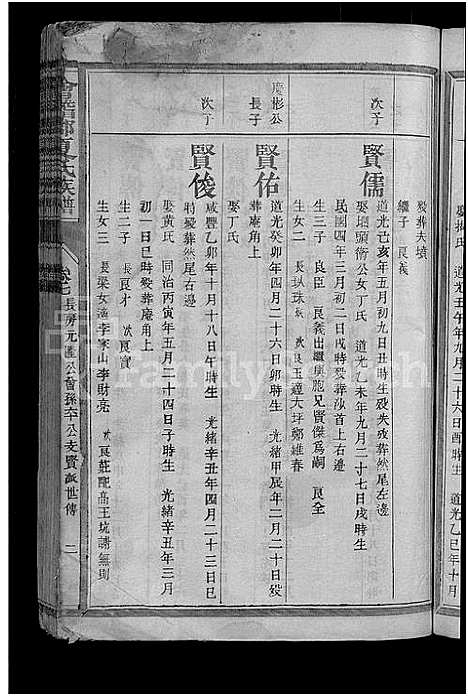 歿葬夫墳
繼子 良義
次子
賢儒
道光己亥年五月初九日丑時生 歿失攷葬然尾左邊
娶壩頭衛公女丁氏 道光乙未年九月二十七日戌時生
民國四年三月初二日戌時歿葬沙首上右邊
生三子 良臣 良義出繼與胞兄賢傑為嗣 良全
生女二 長 次良玉適大坪鄭維春
慶彬公
長子
賢佑
道光癸卯年四月二十六日卯時生 光緒甲辰年二月二十日歿
葬庵角上
娶丁氏
次子
賢俊
咸豐乙卯年十月十八日午時生 光緒辛丑年四月二十三日巳
時歿葬然尾右邊
娶黃氏 同治丙寅年五月二十四日子時生 光緒辛丑年三月
初一日巳時歿葬庵角上
生二子 長良才 次良寶
生女三 長梁女適李家山李財亮 次良莊 高王坑
夏氏族譜
長房元 公會孫六十公支賢 世傳
二
道光五年九月二十六日酉時生 道光乙巳年十月
FamilySearch